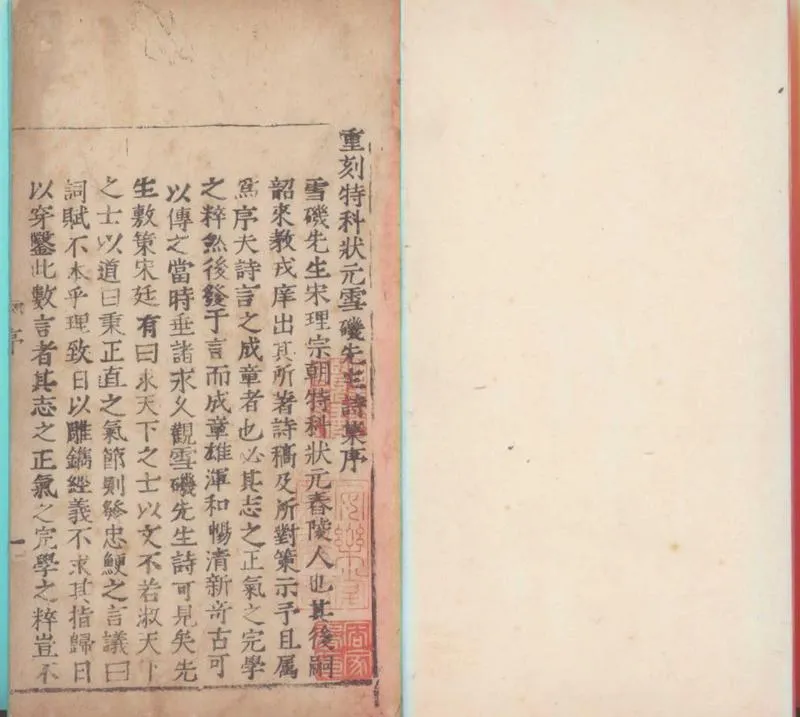 重刻特科狀元雪磯先生詩集序
雪磯先生宋理宗朝特科狀元舂陵人也其後嗣
韶來教戎庠出其所著詩稿及所對策示予且属
爲序夫詩言之成章者也必其志之正氣之完學
之粹然後發于言而成章雄渾和暢清新竒古可
以傳之當時垂諸永久觀雪磯先生詩可見矣先
生敷策宋廷有曰求天下之士以文不若淑天下
之士以道曰秉正直之氣節則發忠鯁之言議曰
詞賦不本乎理致曰以雕鐫經義不求其指歸曰
以穿鑿此數言者其志之正氣之完學之粹豈不
序
一